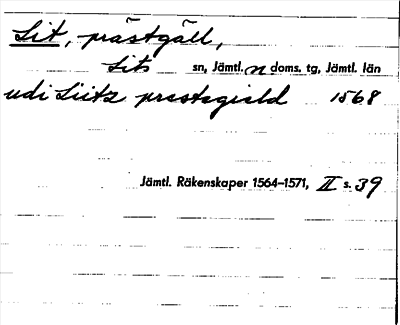 Lit, prästgäll,
Lits sn, Jämtl. n doms. tg, Jämtl. län
udi Liitz prestegield 1568
Jämtl. Räkenskaper 1564-1571, II s. 39